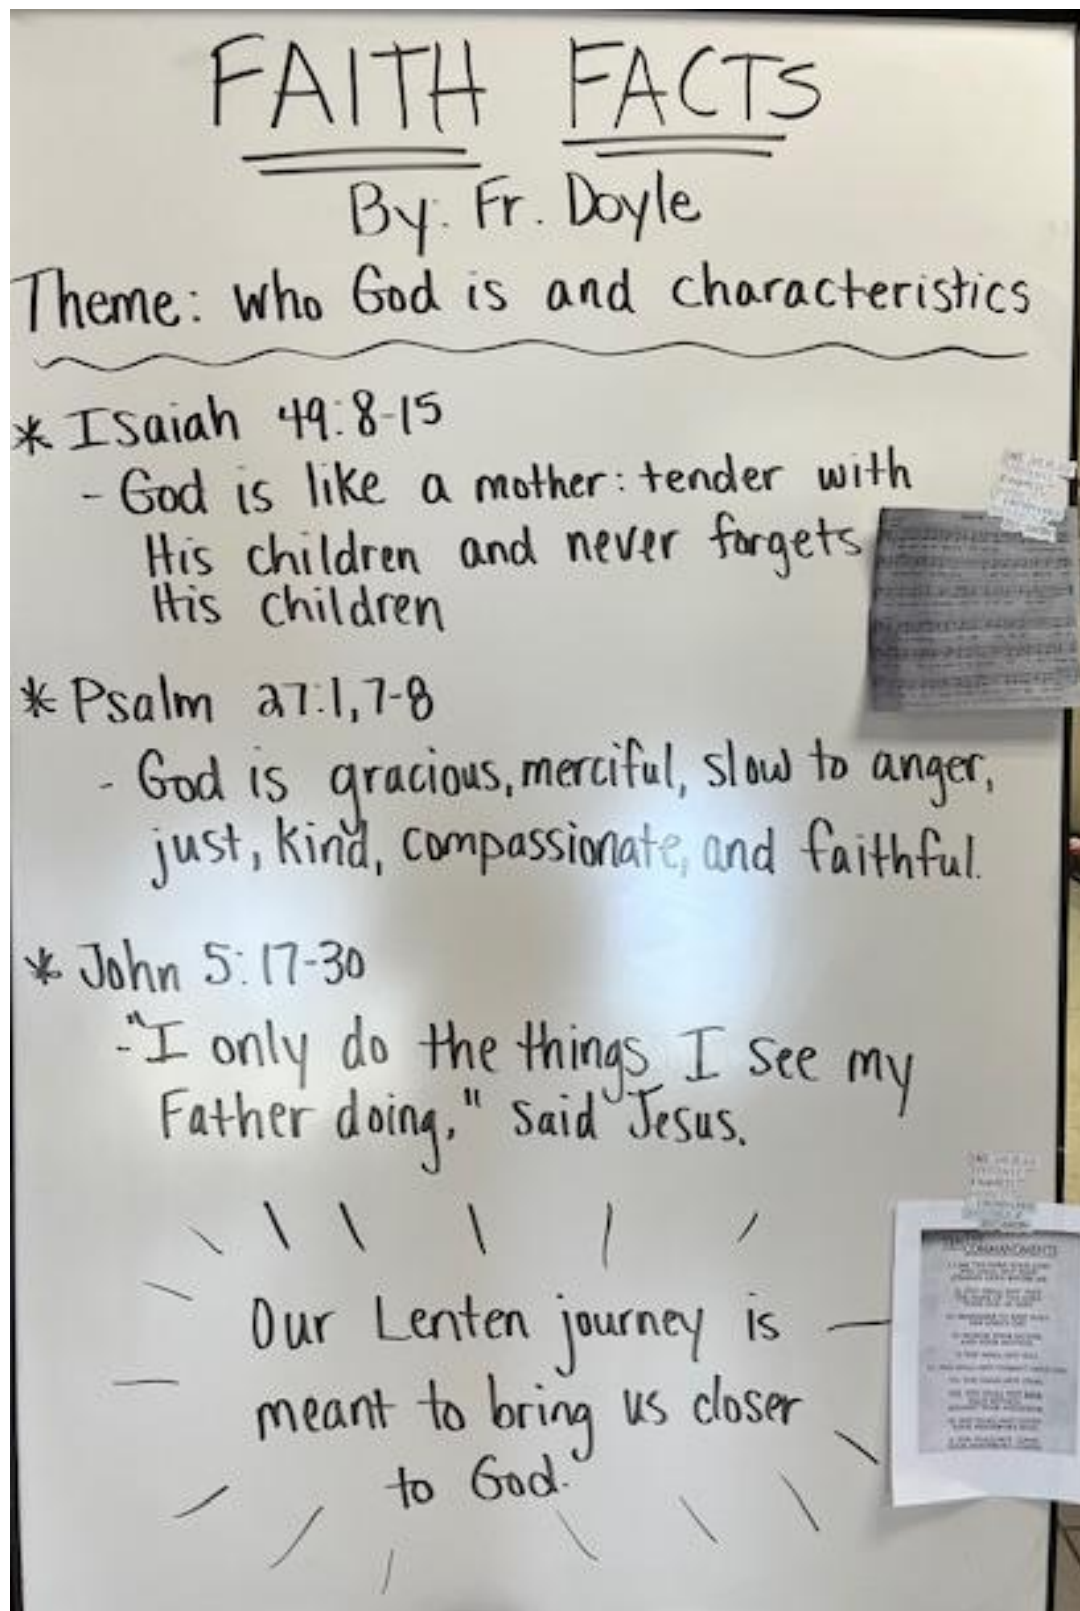 FAITH FACTS
By: Fr. Doyle
Theme: Who God is and characteristics
* Isaiah 49:8-15
- God is like a mother: tender with
His children and never forgets
His children
* Psalm 27:1,7-8
- God is gracious, merciful, slow to anger,
just, kind, compassionate, and faithful.
* John 5:17-30
- "I only do the things I see my
Father doing," said Jesus.
Our Lenten journey is
meant to bring us closer
to God.
COMMANDMENTS